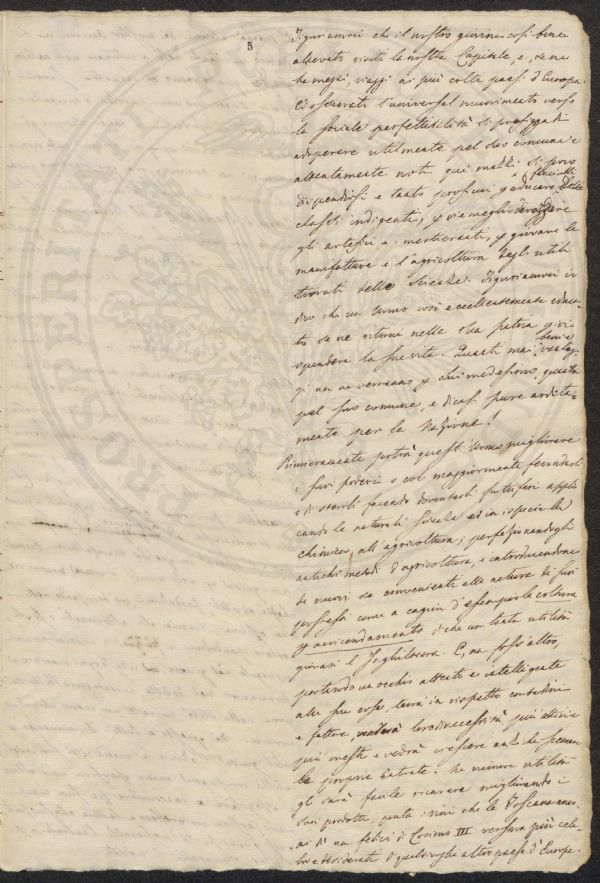 5
Figuriamoci che il nostro giovine così bene
allevato visiti la nostra Capitale, e, se ne
ha mezzi, viaggi ai più colti paesi d'Europa.
Ed osservato l'universal movimento verso
la sociale perfettibilità si prefigga di
adoperare utilmente pel suo comune e
attentamente noti quei mezzi sì poco
dispendiosi e tanto proficui p educare i fanciulli delle
classi indigenti, p vie meglio dirozzare
gli artefici e mestieranti, p giovare le
manifatture e l'agricoltura degli utili
trovati delle scienze. Figuriamoci io
dico che un uomo così eccellentemente educa-
to se ne ritorni nella sua patria p ivi
spendere la sua vita. Quanti mai beni e vantag-
gi non ne verranno p lui medesimo, quanti
pel suo comune, e dicasi pure ardita-
mente per la Nazione!
Primieramente potrà quest'uomo migliorare
i suoi poderi o col maggiormente fecondarli
o i sterili facendo diventarli fruttiferi appli
cando le naturali scienze ed in ispecie la
chimica, all'agricoltura; perfezionando gli
antichi metodi d'agricoltura, e introducendone
de nuovi se convenienti alla natura de' suoi
possessi come a cagion d'esempio la coltura
p avvicendamento di che con tanta utilità si
giova l'Inghilterra. E, non foss'altro,
portando un occhio attento e intelligente
alle sue cose, terrà in rispetto contadini
e fattore, renderà loro di necessità più attivi e
più onesti e vedrà crescere anziché scemare
le proprie entrate. Ne minore utilità
gli sarà facile ricavare migliorando i
suoi prodotti, punto i vini che la Toscana
ai dì felici di Cosimo III versava più cele-
bri e desiderati di qualsivoglia altro paese d'Europa.